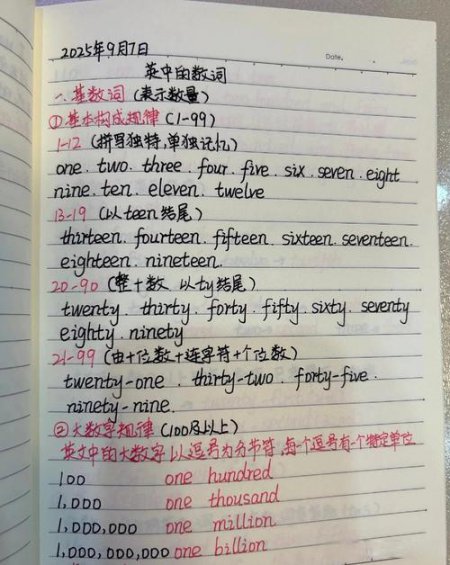 2025年9月7日
Date.
英中的数词
一、基数词 (表示数量)
①基本构成规律 (1-99)
1-12 (拼写独特,单独记忆)
one . two . three . four . five . six . seven . eight
nine . ten . eleven . twelve
13-19 (以teen结尾)
thirteen . fourteen . fifteen . sixteen . seventeen .
eighteen . nineteen .
20-90 (整十数、以ty结尾)
twenty . thirty . forty . fifty . sixty . seventy
eighty . ninety
21-99 (由十位数+连字符+个位数)
twenty-one . thirty-two . forty-five .
ninety-nine .
②大数字规律 (100及以上)
英文中的大数字以逗号为分节符,每个逗号有一个特定单位
100 one hundred
1,000 one thousand
1,000,000 one million
1,000,000,000 one billion